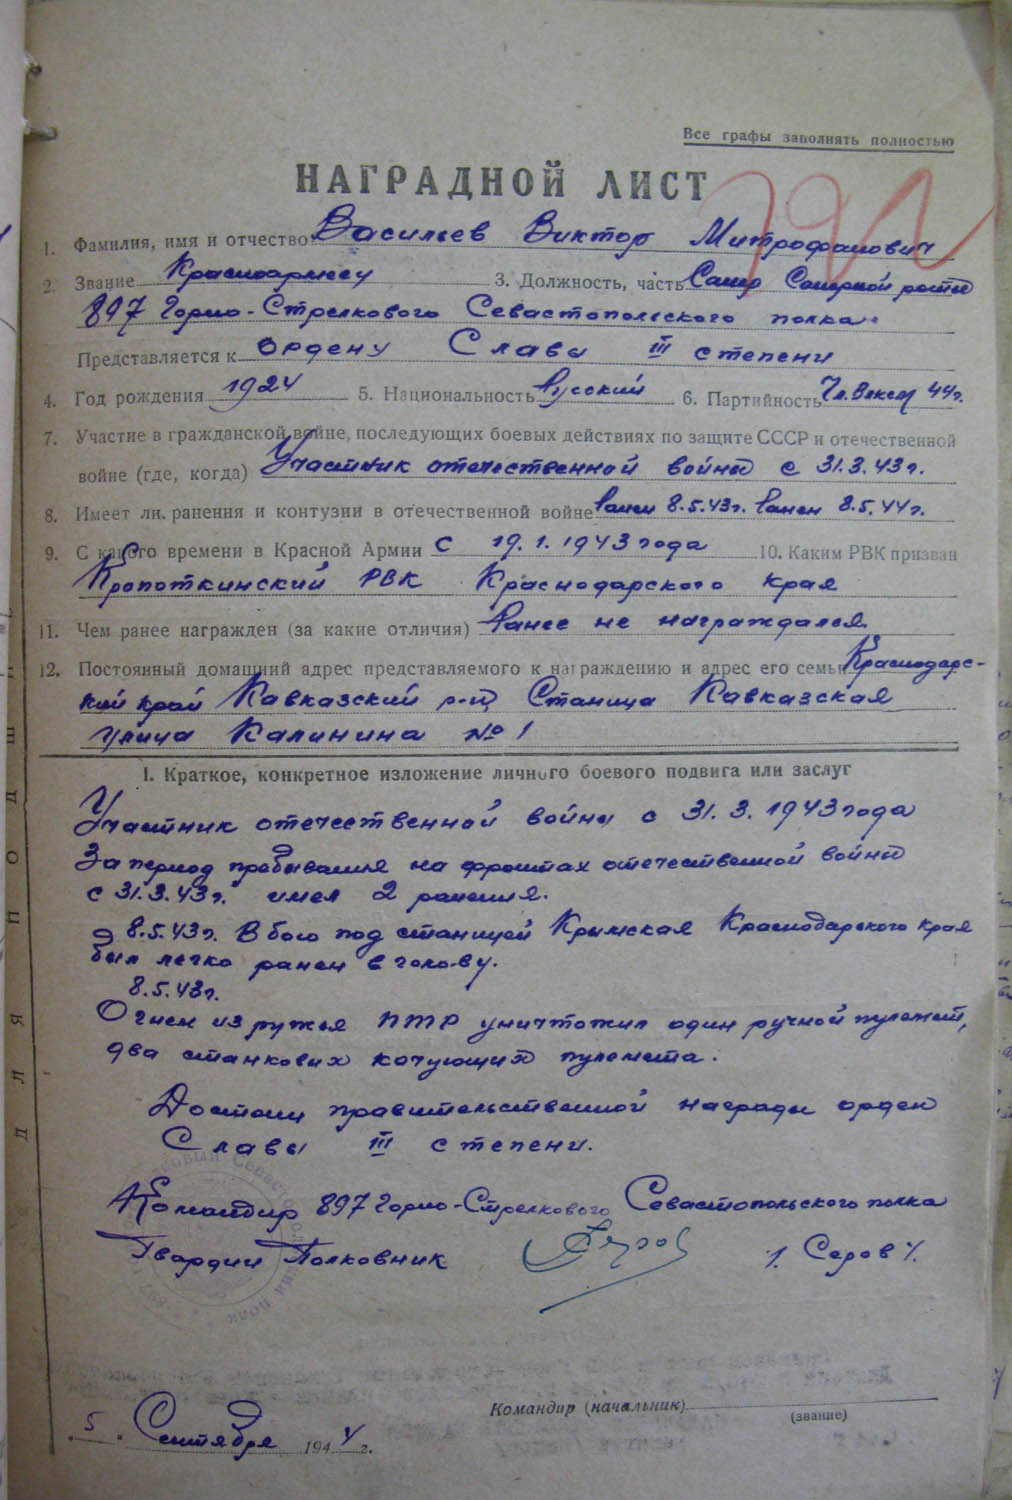 Все графы заполнять полностью
НАГРАДНОЙ ЛИСТ
1. Фамилия, имя и отчество Васильев Виктор Митрофанович
2. Звание Красноармеец 3. Должность, часть Сапер Саперной роты
897 Горно-Стрелкового Севастопольского полка.
Представляется к ордену Славы III степени
4. Год рождения 1924 5. Национальность Русский 6. Партийность Чл. Влксм 44г.
7. Участие в гражданской войне, последующих боевых действиях по защите СССР и отечественной
войне (где, когда) Участник отечественной войны с 31.3.43г.
8. Имеет ли ранения и контузии в отечественной войне Ранен 8.5.43г. Ранен 8.5.44г.
9. С какого времени в Красной Армии с 19.1.1943 года 10. Каким РВК призван
Кропоткинский РВК Краснодарского края
11. Чем ранее награжден (за какие отличия) Ранее не награждался
12. Постоянный домашний адрес представляемого к награждению и адрес его семьи Краснодарс-
кий край Кавказский р-н Станица Кавказская
улица Калинина № 1
I. Краткое, конкретное изложение личного боевого подвига или заслуг
Участник отечественной войны с 31.3.1943 года
За период пребывания на фронтах отечественной войны
с 31.3.43г. имел 2 ранения.
8.5.43г. В бою под станицей Крымская Краснодарского края
был легко ранен в голову.
8.5.43г.
Огнем из ружья ПТР уничтожил один ручной пулемет,
два станковых кочующих пулемета.
Достоин правительственной награды орден
Славы III степени.
Командир 897 Горно-Стрелкового Севастопольского полка
Гвардии Полковник Серов /. Серов /.
Командир (начальник)
(звание)
5 Сентября 1944 г.
ДЛЯ ПОДШ